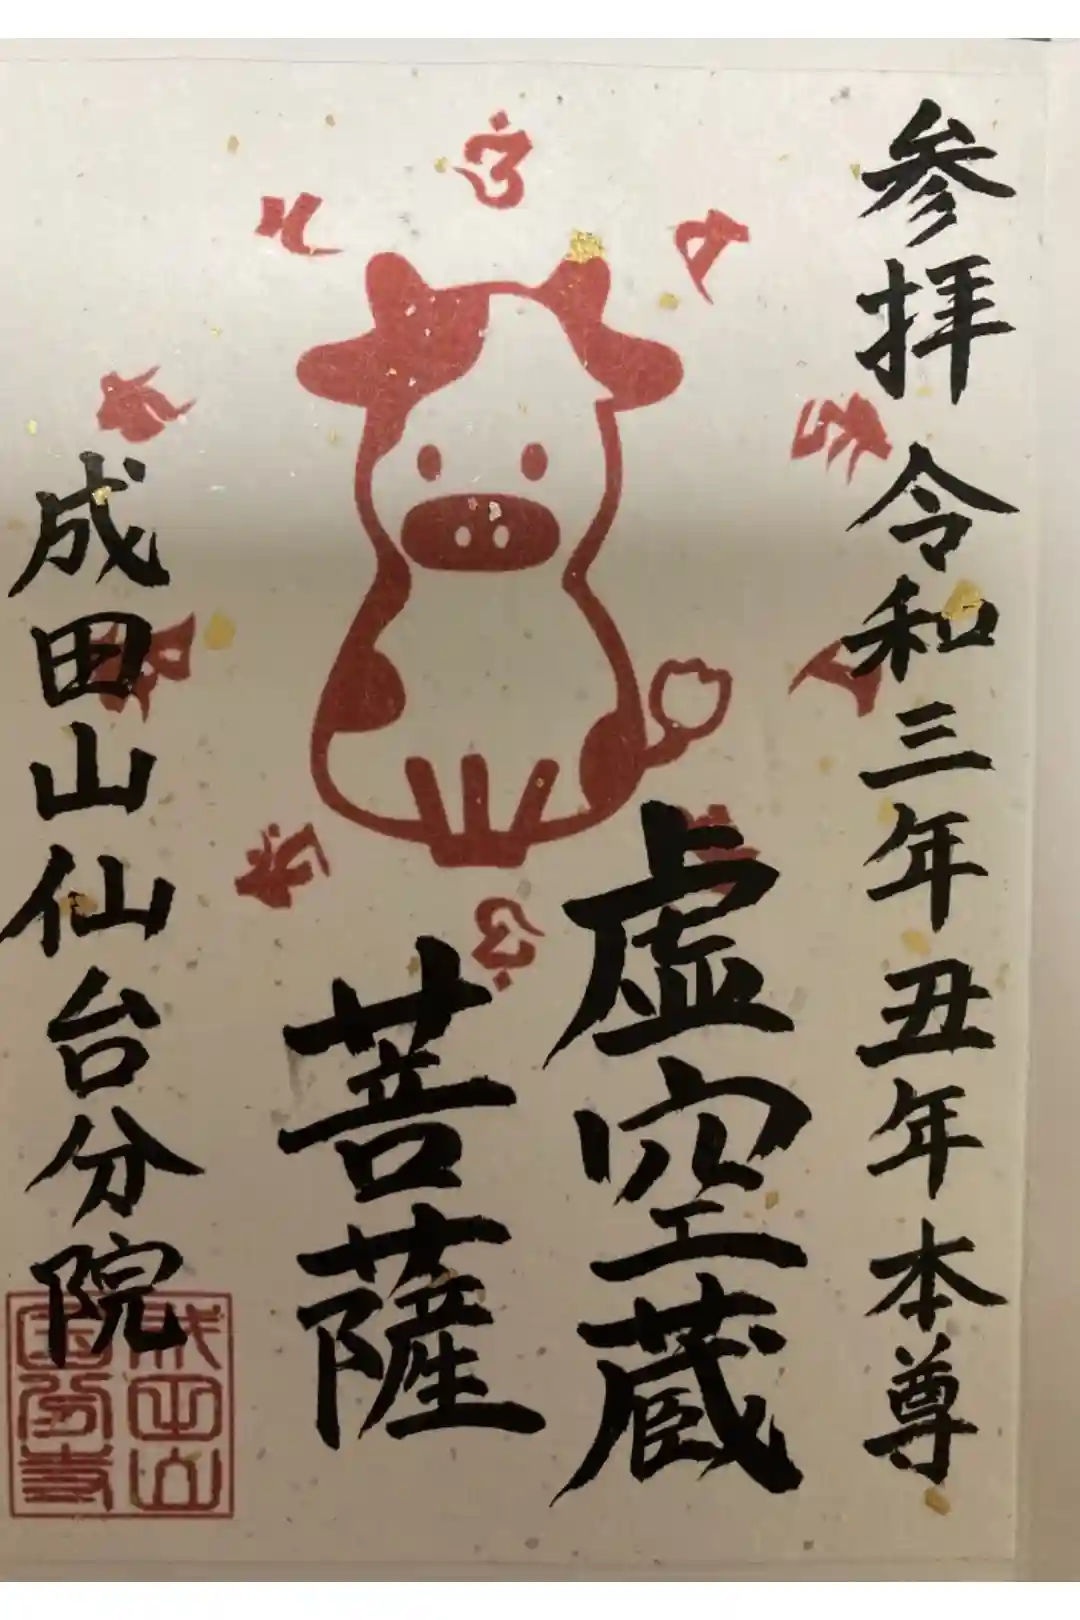 参拝 令和三年丑年 本尊
虚空蔵
菩薩
成田山仙台分院